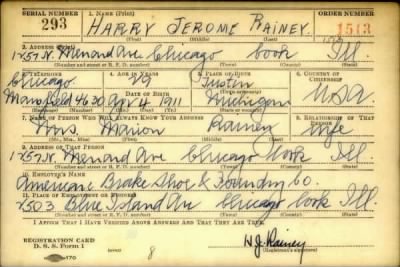 SERIAL NUMBER 1. NAME (Print) ORDER NUMBER
293 HARRY JEROME RAINEY 1513
(First) (Middle) (Last)
2. ADDRESS (Print)
1757 N. Menard Ave Chicago Cook Ill.
(Number and street or R. F. D. number) (Town) (County) (State)
3. TELEPHONE 4. AGE IN YEARS 5. PLACE OF BIRTH 6. COUNTRY OF CITIZENSHIP
Chicago 29 Justin
DATE OF BIRTH
Mansfield 4630 Apr 4 1911 Michigan USA
(Exchange) (Number) (Mo.) (Day) (Yr.) (State or country)
7. NAME OF PERSON WHO WILL ALWAYS KNOW YOUR ADDRESS 8. RELATIONSHIP OF THAT PERSON
Mrs. Marion Rainey Wife
(Mr., Mrs., Miss) (First) (Middle) (Last)
9. ADDRESS OF THAT PERSON
1757 N. Menard Ave Chicago Cook Ill.
(Number and street or R. F. D. number) (Town) (County) (State)
10. EMPLOYER'S NAME
American Brake Shoe & Foundry Co.
11. PLACE OF EMPLOYMENT OR BUSINESS
7503 Blue Island Ave Chicago Cook Ill.
(Number and street or R. F. D. number) (Town) (County) (State)
I AFFIRM THAT I HAVE VERIFIED ABOVE ANSWERS AND THAT THEY ARE TRUE.
REGISTRATION CARD
D. S. S. Form 1
H J Rainey
(Registrant's signature)
8